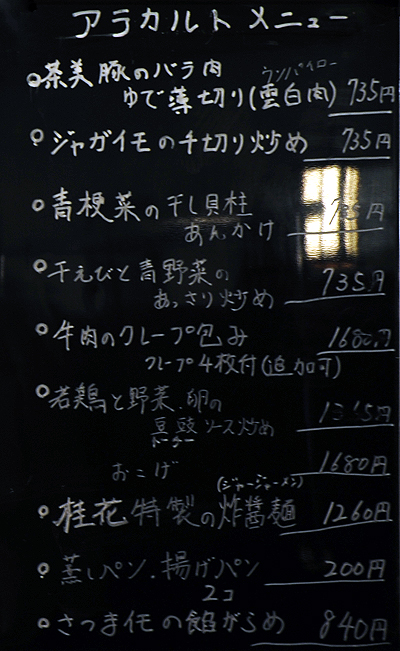 アラカルトメニュー
茶美豚のバラ肉
ウンパイロー
ゆで薄切り(雲白肉) 735円
ジャガイモの千切り炒め 735円
青梗菜の干し貝柱
あんかけ 735円
干えびと青野菜の
あっさり炒め 735円
牛肉のクレープ包み 1680円
クレープ4枚付(追加可)
若鶏と野菜、卵の
ソース炒め
おこげ 1680円
(ジャージャーメン)
桂花特製の炸醤麺 1260円
蒸しパン、揚げパン 200円
2コ
さつまイモの飴がらめ 840円